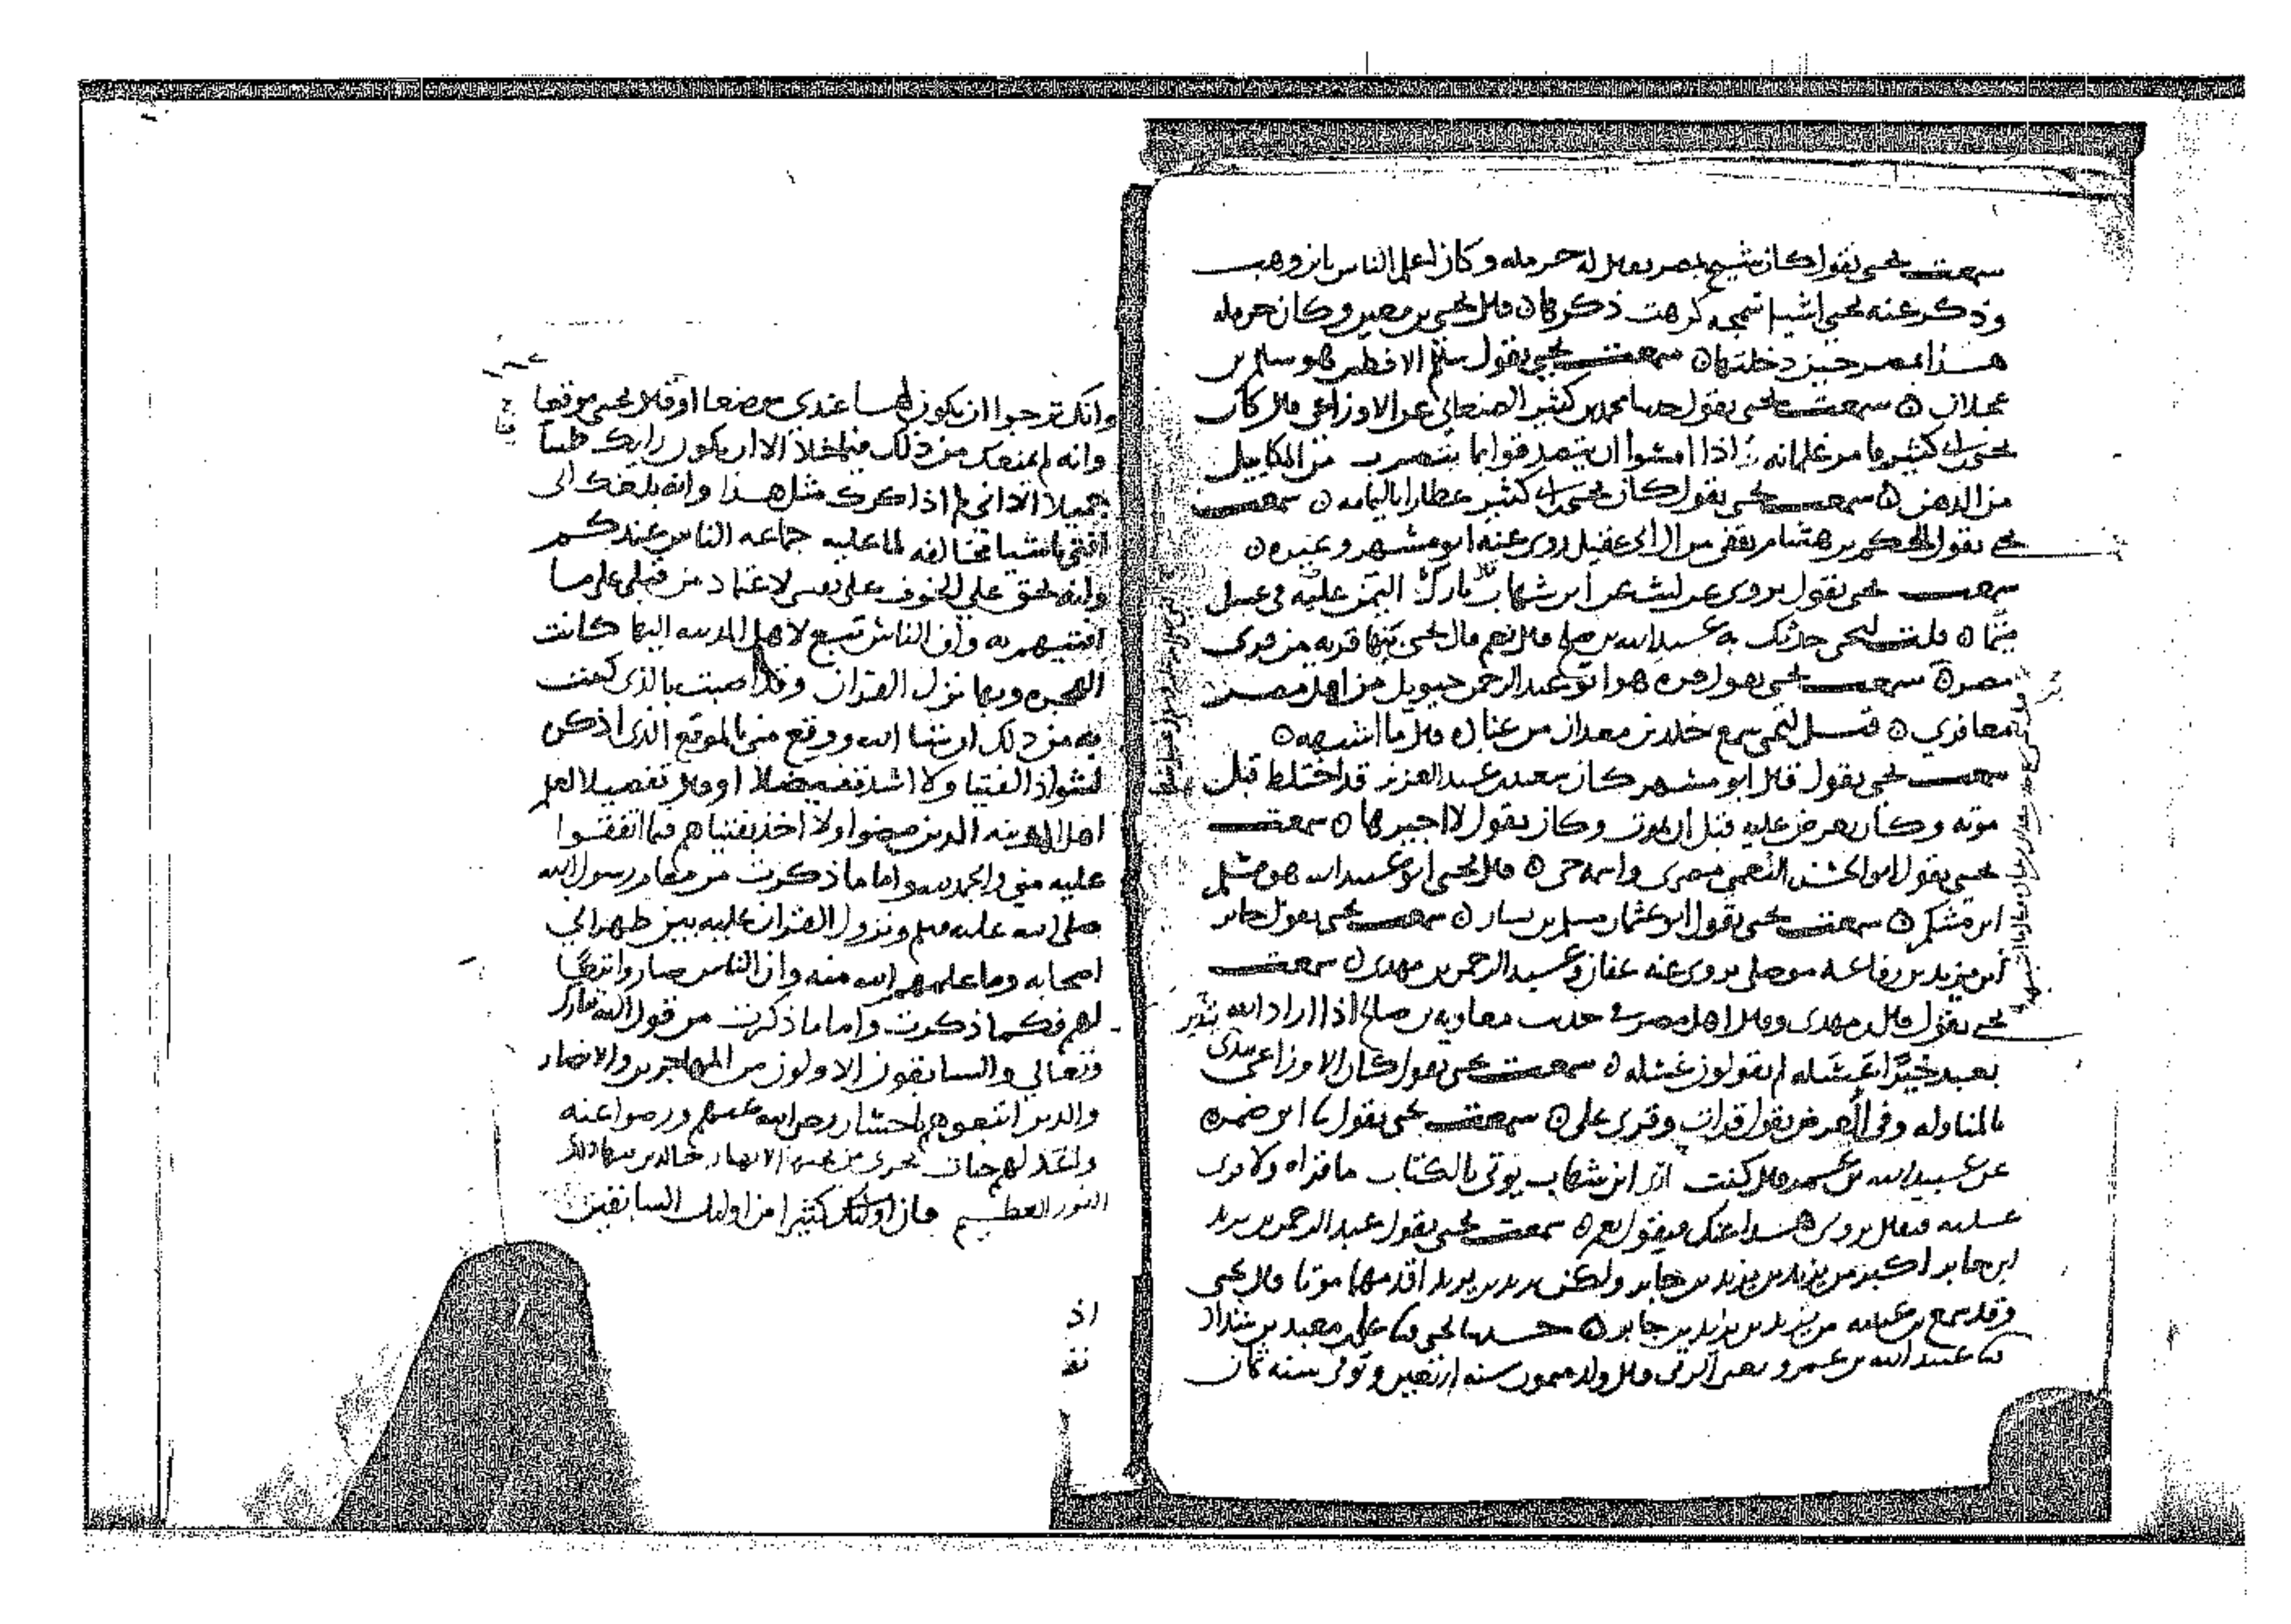 سمعت يحيى يقول كان شيخ بمصر يقال له حرمله وكان اعلم الناس بابن وهب
وذكر عنه يحيى اشيا سمجه كرهت ذكرها ٥ قال يحيى بن معين وكان حرمله
هذا بمصر حين دخلتها ٥ سمعت يحيى يقول سلم الافطس هو سالم بن
عجلان ٥ سمعت يحيى يقول حدثنا محمد بن كثير الصنعاني عن الاوزاعي قال كان
يحيى بن ابي كثير يامر غلمانه اذا امسوا ان يتصدقوا بما ينصب من المكاييل
من الدهن ٥ سمعت يحيى يقول كان يحيى بن ابي كثير عطارا باليمامه ٥ سمعت
يحيى يقول الحكم بن هشام ثقفي من ال ابي عقيل روى عنه ابو مسهر وغيره ٥
سمعت يحيى يقول يروى عن ليث عن ابن شهاب بارك النبي عليه في عسل
بنها ٥ قلت ليحيى حدثك به عبد الله بن صالح قال نعم قال يحيى بنها قريه من قرى
مصر ٥ سمعت يحيى يقول قره هو ابن عبد الرحمن حيويل من اهل مصر
معافري ٥ قيل ليحيى سمع خلد بن معدان من عباده قال ما اشبهه ٥
سمعت يحيى يقول قال ابو مسهر كان سعيد بن عبد العزيز قد اختلط قبل
موته وكان يعرض عليه قبل ان يموت وكان يقول لا اجيزها ٥ سمعت
يحيى يقول ابو الخشن النعمي مصري واسمه حي ٥ قال يحيى ابو عبيد الله هو مسلم
ابن مشكم ٥ سمعت يحيى يقول ابو عثمان مسلم بن يسار ٥ سمعت يحيى يقول جابر
ابن يزيد بن رفاعه موصلي يروى عنه عفان وعبد الرحمن بن مهدي ٥ سمعت
يحيى يقول قال بن مهدي وقال اهل مصر في حديث معاويه بن صالح اذا اراد الله
بعبد خيرا عسله لم يقولوا غسله ٥ سمعت يحيى يقول كان الاوزاعي
بالمناوله وفي العرض يقول قرات وقرى علي ٥ سمعت يحيى يقول نا ابو ضمره
عن عبيد الله بن عمر قال كنت ارى ابن شهاب يوتى بالكتاب ما قراه ولا قرى
عليه فيقال يروى هذا عنك فيقول نعم ٥ سمعت يحيى يقول عبد الرحمن بن يزيد
ابن جابر اكبر من يزيد بن يزيد بن جابر ولكن يزيد بن يزيد اقدمهما موتا قال يحيى
وقد سمع بن عيينه من يزيد بن يزيد بن جابر ٥ حدثنا يحيى نا علي بن معبد بن شداد
نا عبيد الله بن عمرو يعني الرقي قال ولد ميمون سنه اربعين وتوفي سنه ثمان
وانك ترجوا ان يكون لها عندي موضعا او قال يحيى موقعا
وانه لم يمنعك من ذلك فيما خلا الا ان يكون رايك فينا
جميلا الا اني لم اذاكرك مثل هذا وانه بلغك اني
افتي باشيا مخالفه لما عليه جماعه الناس عندكم
وانه يحق علي الخوف على نفسي لاعتماد من قبلي على ما
افتيهم به وان الناس تبع لاهل المدينه اليها كانت
الهجره وبها نزل القران وقد اصبت بالذي كتبت
به من ذلك ان شا الله ووقع مني بالموقع الذي اذكر
لشواذ الفتيا ولا اشد تفضيلا او قال تفضيلا لعلم
اهل المدينه الذين مضوا ولا اخذ بفتياهم فيما اتفقوا
عليه مني والحمد لله واما ما ذكرت من مقام رسول الله
صلى الله عليه وسلم ونزول القران عليه بين ظهراني
اصحابه وما علمهم الله منه وان الناس صاروا تبعا
لهم فكما ذكرت واما ما ذكرت من قول الله تبارك
وتعالى والسابقون الاولون من المهاجرين والانصار
والذين اتبعوهم باحسان رضى الله عنهم ورضوا عنه
واعد لهم جنات تجرى من تحتها الانهار خالدين فيها ذلك
الفوز العظيم فان اوليك كثيرا من اوليك السابقين